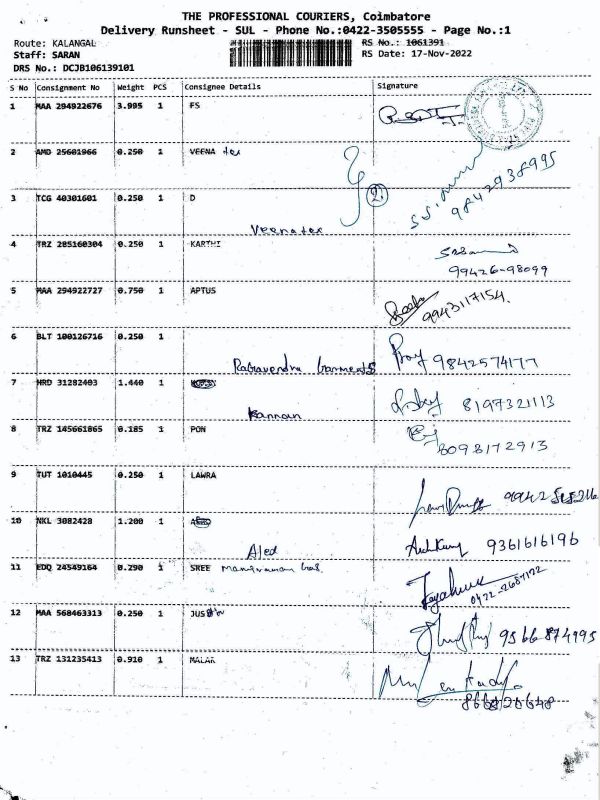 THE PROFESSIONAL COURIERS, Coimbatore
Delivery Runsheet - SUL - Phone No.:0422-3505555 - Page No.:1
Route: KALANGAL
RS No.: 1061391
Staff: SARAN
RS Date: 17-Nov-2022
DRS No.: DCJB106139101
S No Consignment No Weight PCS Consignee Details Signature
1 MAA 294922676 3.995 1 FS
2 AMD 25601966 0.250 1 VEENA tex
9842938995
3 TCG 40301601 0.250 1 D
2
Veenatex
4 TRZ 285160304 0.250 1 KARTHI
99426-98099
5 MAA 294922727 0.750 1 APTUS
9943117154.
6 BLT 100126716 0.250 1
Ragavendra Garments 9842574177
7 HRD 31282403 1.440 1
Kannan 8197321113
8 TRZ 145661865 0.185 1 PON
8098172913
9 TUT 1010445 0.250 1 LAWRA
10 NKL 3082428 1.200 1
9361616196
11 EDQ 24549164 0.290 1 SREE
0422-2687122
12 MAA 568463313 0.250 1 JUS
9566874995
13 TRZ 131235413 0.910 1 MALAR